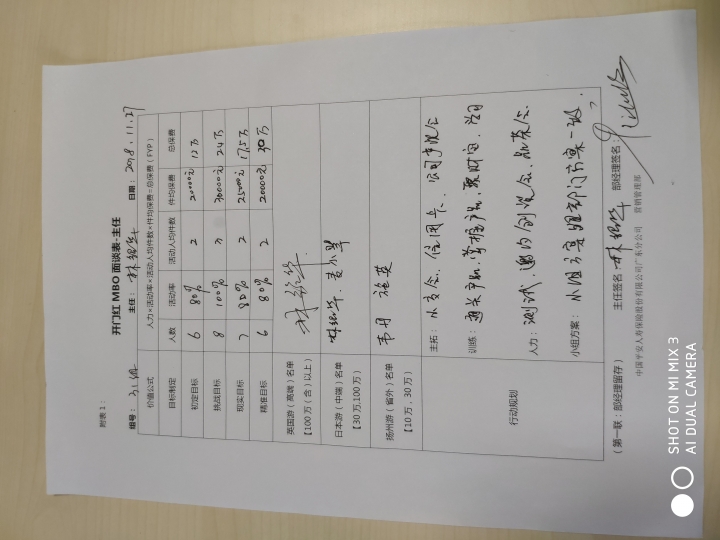 附表 1：
开门红 MBO 面谈表-主任
组号： 主任：林 日期：2018.11.27
价值公式 人力×活动率×活动人均件数×件均保费=总保费（FYP）
目标制定 人数 活动率 活动人均件数 件均保费 总保费
初定目标 6 80% 2 20000元
挑战目标 8 100% 3 30000元 24万
现实目标 7 80% 2 25000元 17.5万
精准目标 6 80% 2 20000元 30万
英国游（高端）名单
【100 万（含）以上】
日本游（中端）名单
【30 万,100 万】
扬州游（省外）名单
【10 万，30 万】 韦丹 施英
行动规划
主拓： 信用卡、公司产说会
训练： 通关产品、掌握产品、聚财宝、
人力： 测试、邀约创说会、
小组方案：小组方案跟部门方案一致。
主任签名： 部经理签名：
（第一联：部经理留存） 中国平安人寿保险股份有限公司广东分公司 营销管理部
SHOT ON MI MIX 3
AI DUAL CAMERA